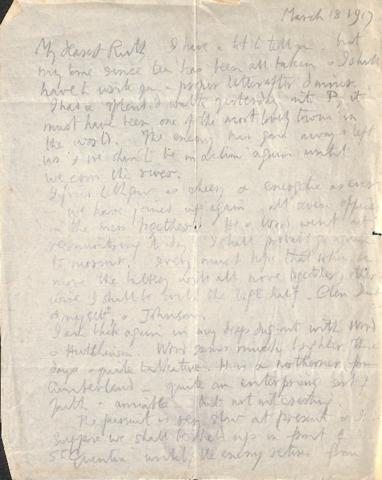 March 18 1917
My dearest Ruth I have a lot to tell you but
my time since tea has been all taken & I shall
have to write you a proper letter after dinner.
I had a splendid walk yesterday into P. it
must have been one of the most lovely towns in
the world. The enemy has gone away & left
us & we shan't be in action again until
we cross the river.
Lithgow as cheery & energetic as ever
we have joined up again all seven officers
in the mess together. He & Wood went out
reconnoitring to day & I shall probably go again
to morrow. I very much hope that when we
move the battery will all move together, other
wise I shall be with the left half. Glen
& myself & Johnson.
I am back again in my dug-out with Wood
& Hutchinson. Wood seems much brighter these
days & quite talkative. He is a northerner from
Cumberland – quite an enterprising sort of
youth – amiable but not interesting.
The pursuit is very slow at present & I
suppose we shall be held up in front of
St Quentin until the enemy retires from